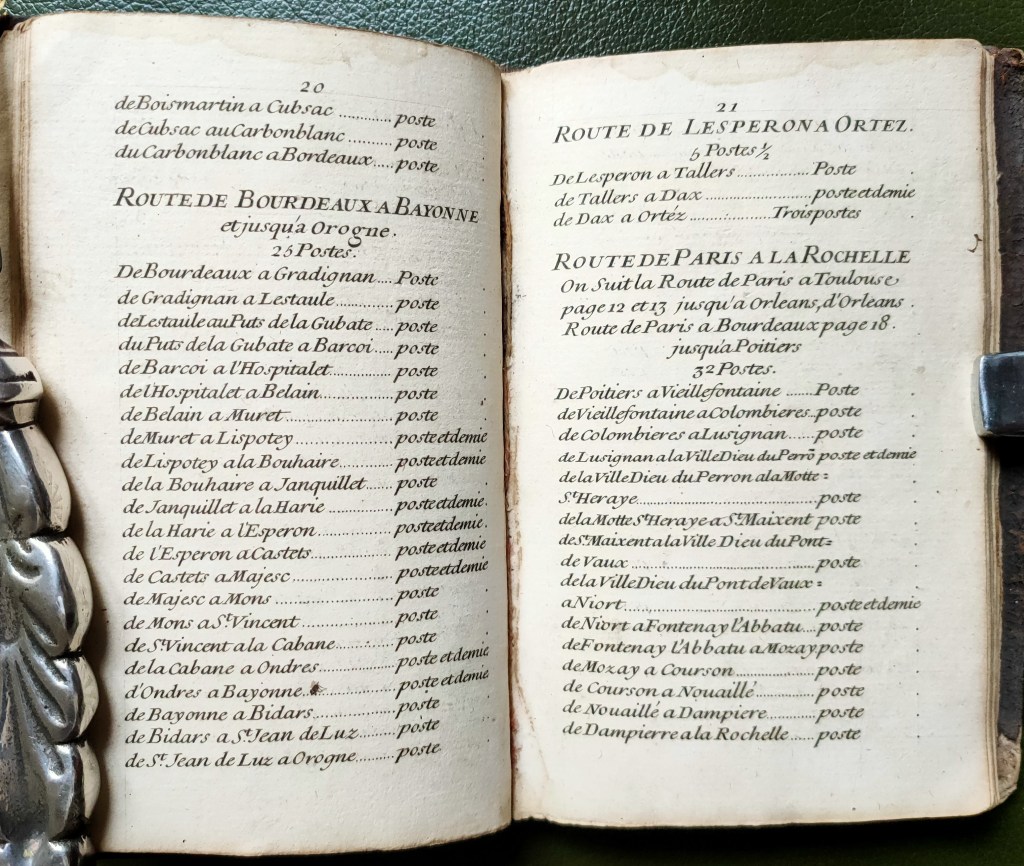 20
de Boismartin a Cubsac ............ poste
de Cubsac au Carbonblanc ............ poste
du Carbonblanc a Bordeaux ..... poste
ROUTE DE BOURDEAUX A BAYONNE
et jusqu'a Orogne.
25 Postes.
De Bourdeaux a Gradignan .... Poste
de Gradignan a Lestaule ............ poste
de Lestaule au Puts de la Gubate .... poste
du Puts de la Gubate a Barcoi ..... poste
de Barcoi a l'Hospitalet ............ poste
de l'Hospitalet a Belain ............ poste
de Belain a Muret ............ poste
de Muret a Lispotey ............ poste et demie
de Lispotey a la Bouhaire ............ poste et demie
de la Bouhaire a Janquillet ...... poste
de Janquillet a la Harie ............ poste et demie.
de la Harie a l'Esperon ............ poste et demie.
de l'Esperon a Castets ............ poste et demie
de Castets a Majesc ............ poste et demie
de Majesc a Mons ............ poste
de Mons a St. Vincent ............ poste
de St. Vincent a la Cabane ............ poste
de la Cabane a Ondres ............ poste et demie
d'Ondres a Bayonne ............ poste et demie
de Bayonne a Bidars ............ poste
de Bidars a St. Jean de Luz ......... poste
de St. Jean de Luz a Orogne ......... poste
21
ROUTE DE LESPERON A ORTEZ.
5 Postes ½
De Lesperon a Tallers ............... Poste
de Tallers a Dax ............ poste et demie
de Dax a Ortéz ............ Trois postes
ROUTE DE PARIS A LA ROCHELLE
On Suit la Route de Paris a Toulouse
page 12 et 13 jusqu'a Orleans, d'Orleans .
Route de Paris a Bourdeaux page 18.
jusqu'a Poitiers
32 Postes.
De Poitiers a Vieillefontaine ...... Poste
de Vieillefontaine a Colombieres .. poste
de Colombieres a Lusignan ...... poste
de Lusignan a la Ville Dieu du Perrõ poste et demie
de la Ville Dieu du Perron a la Motte =
St. Heraye ............ poste
de la Motte St. Heraye a St. Maixent poste
de St. Maixent a la Ville Dieu du Pont=
de Vaux ............ poste
de la Ville Dieu du Pont de Vaux =
a Niort ............ poste et demie
de Niort a Fontenay l'Abbatu .... poste
de Fontenay l'Abbatu a Mozay. poste
de Mozay a Courson ............ poste
de Courson a Nouaillé ............ poste
de Nouaillé a Dampiere ............ poste
de Dampierre a la Rochelle ..... poste